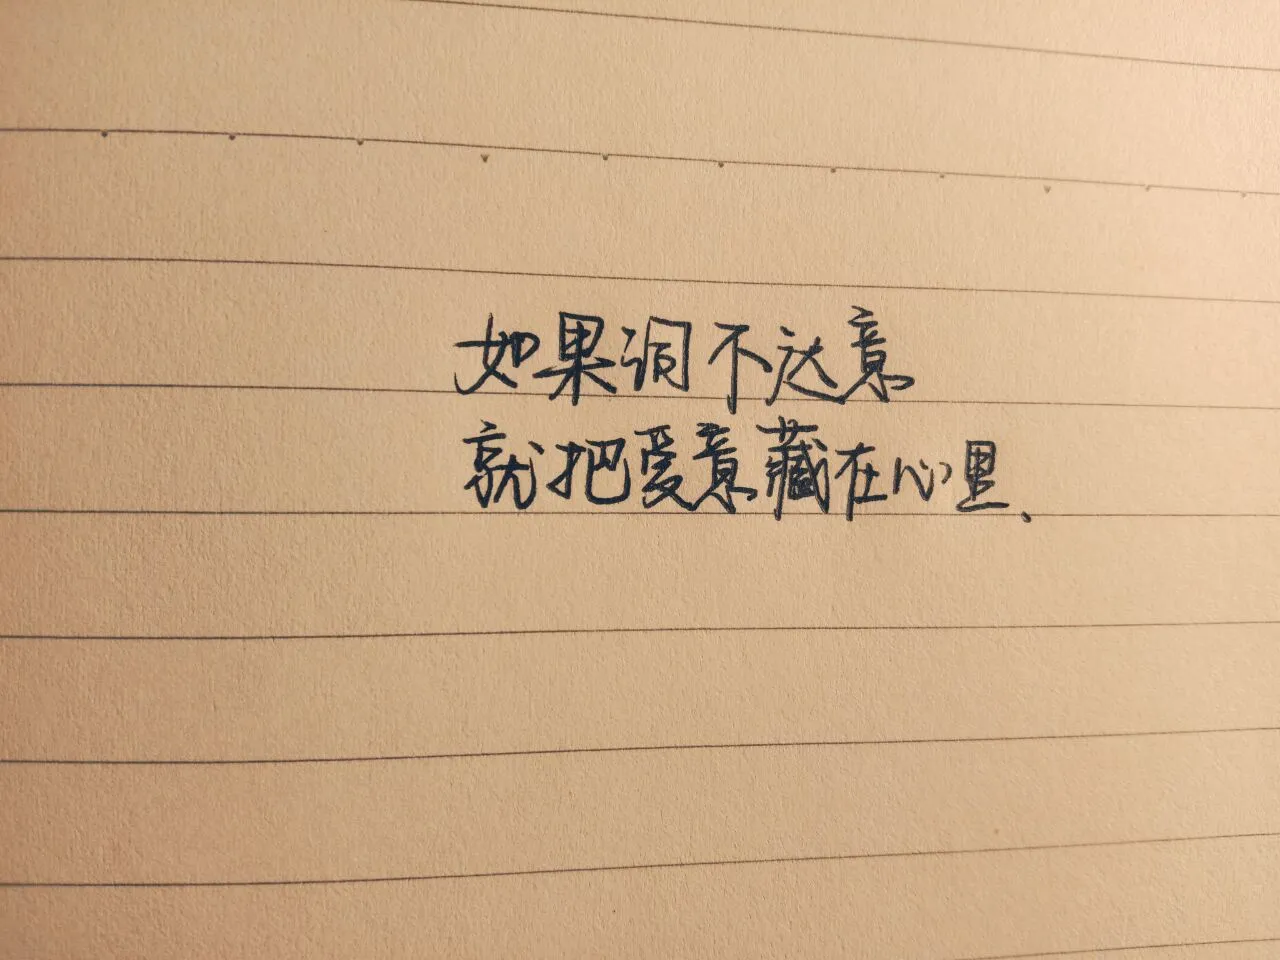 如果词不达意
就把爱意藏在心里、